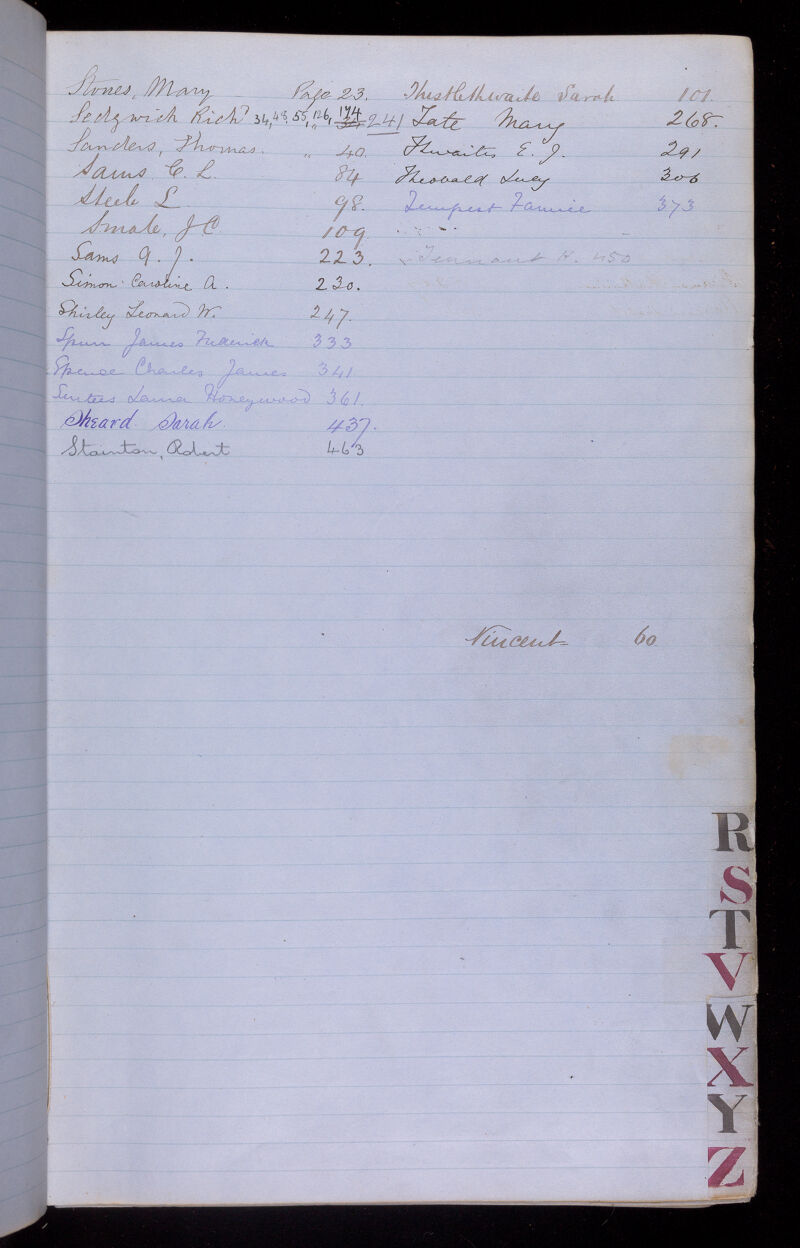 Stones, Mary Page 23.
Sedgwick Richd 34, 48, 55, 126, 174 241
Sanders, Thomas. " 40.
Sams C. L. 84
Steele L 98.
Smale, J C 109
Sams A. J. 223.
Simon Caroline A. 230.
Shirley Leonard W. 247.
Spurr James Frederick 333
Spence Charles James 341
Senters Laura Honeywood 361.
Sheard Sarah. 437.
Stainton, Robert 463
Thistlethwaite Sarah 101.
Tate Mary 268.
Thwaites E. J. 291
Theobald Lucy 306
Tempest Fannie 373
Tennant H. 450
Vincent 60
R
S
T
V
W
X
Y
Z